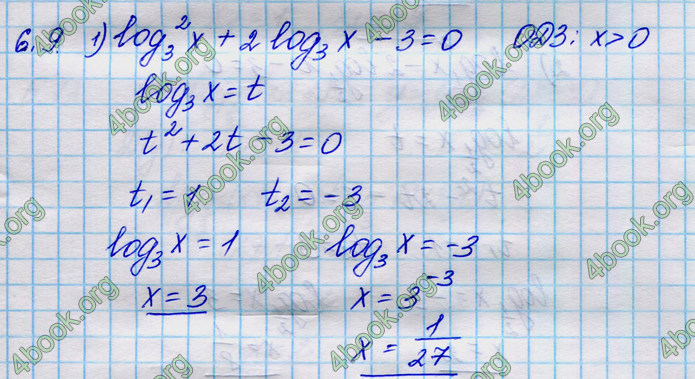 6.9. 1) log₃²x + 2 log₃ x − 3 = 0 ОДЗ: x > 0
log₃ x = t
t² + 2t − 3 = 0
t₁ = 1 t₂ = −3
log₃ x = 1 log₃ x = −3
x = 3 x = 3⁻³
x = 1/27
4book.org
4book.org
4book.org
4book.org
4book.org
4book.org
4book.org
4book.org
4book.org